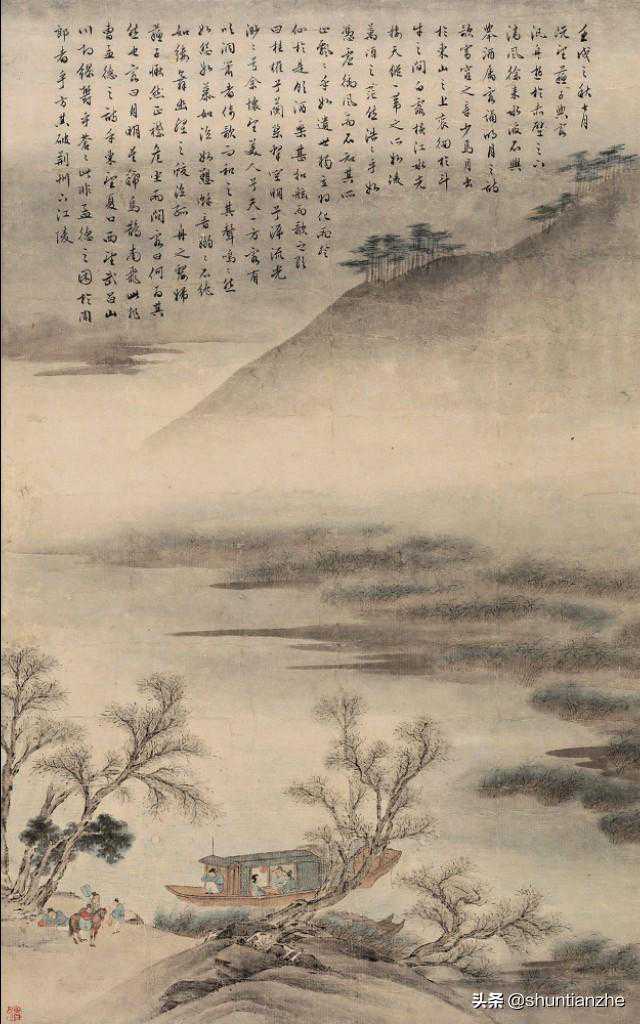 壬戌之秋七月
既望蘇子與客
泛舟遊於赤壁之下
清風徐來水波不興
舉酒屬客誦明月之詩
歌窈窕之章少焉月出
於東山之上徘徊於斗
牛之間白露橫江水光
接天縱一葦之所如凌
萬頃之茫然浩々乎如
憑虛御風而不知其所
止飄々乎如遺世獨立羽化而登
仙於是飲酒樂甚扣舷而歌之歌
曰桂棹兮蘭槳擊空明兮泝流光
渺々兮余懷望美人兮天一方客有
吹洞簫者倚歌而和之其聲嗚々然
如怨如慕如泣如愬餘音嫋々不絕
如縷舞幽壑之潛蛟泣孤舟之嫠婦
蘇子愀然正襟危坐而問客曰何為其
然也客曰月明星稀烏鵲南飛此非
曹孟德之詩乎東望夏口西望武昌山
川相繆鬱乎蒼々此非孟德之困於周
郎者乎方其破荊州下江陵
头条 @shuntianzhe